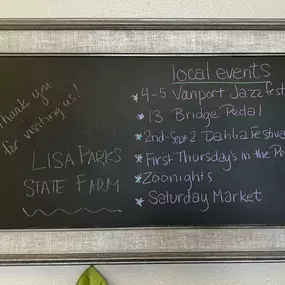 Thank you
for visiting us!
LISA PARKS
STATE FARM
local events
4-5 Vanport Jazz Fest
13 Bridge Pedal
2nd-Sept 2 Dahlia Festiva
First Thursday's in the Pe
Zoonights
Saturday Market